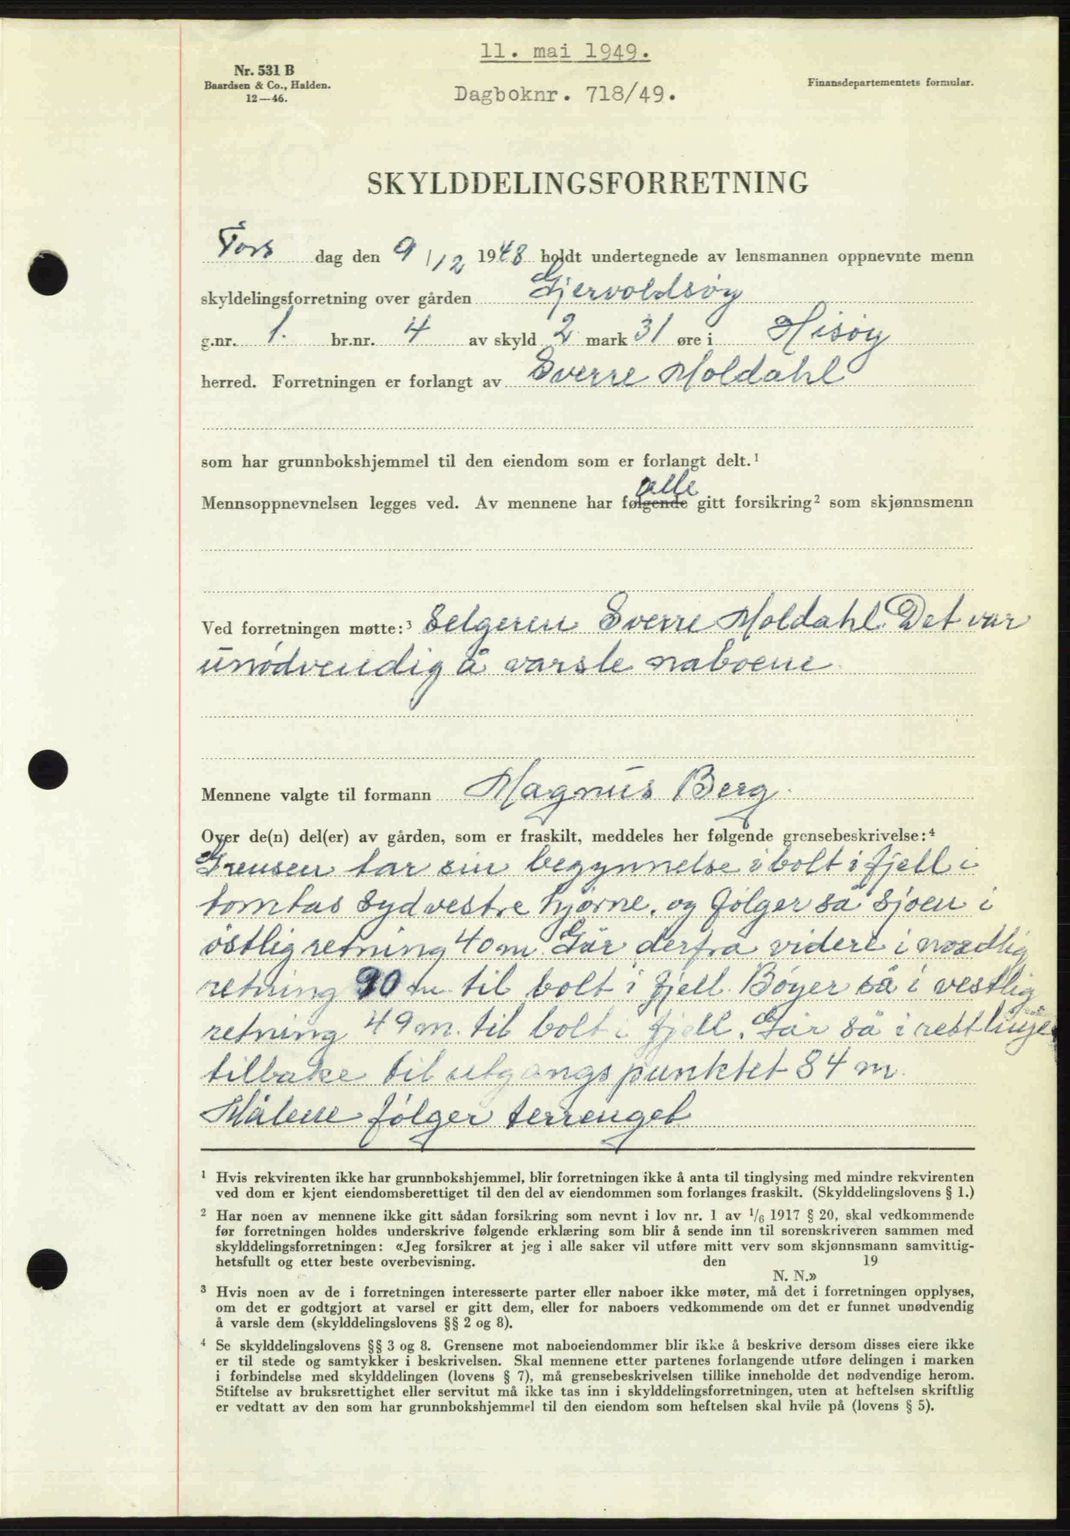 11. mai 1949.
Nr. 531 B
Baardsen & Co., Halden.
12—46.
Dagboknr. 718/49.
Finansdepartementets formular.
SKYLDDELINGSFORRETNING
Tors dag den 9/12 1948 holdt undertegnede av lensmannen oppnevnte menn
skyldelingsforretning over gården Gjervoldsøy
g.nr. 1. br.nr. 4 av skyld 2 mark 31 øre i Hisøy
herred. Forretningen er forlangt av Sverre Moldahl
som har grunnbokshjemmel til den eiendom som er forlangt delt.¹
alle
Mennsoppnevnelsen legges ved. Av mennene har følgende gitt forsikring² som skjønnsmenn
Ved forretningen møtte:³ Selgeren Sverre Moldahl. Det var
unødvendig å varsle naboene.
Mennene valgte til formann Magnus Berg.
Over de(n) del(er) av gården, som er fraskilt, meddeles her følgende grensebeskrivelse:⁴
Grensen tar sin begynnelse i bolt i fjell i
tomtas sydvestre hjørne. og følger så sjøen i
østlig retning 40 m. Går derfra videre i nordlig
retning 90 m til bolt i fjell. Bøyer så i vestlig
retning 49 m. til bolt i fjell. Går så i rett linje
tilbake til utgangspunktet 84 m.
Målene følger terrenget
¹ Hvis rekvirenten ikke har grunnbokshjemmel, blir forretningen ikke å anta til tinglysing med mindre rekvirenten
ved dom er kjent eiendomsberettiget til den del av eiendommen som forlanges fraskilt. (Skylddelingslovens § 1.)
² Har noen av mennene ikke gitt sådan forsikring som nevnt i lov nr. 1 av 1/6 1917 § 20, skal vedkommende
før forretningen holdes underskrive følgende erklæring som blir å sende inn til sorenskriveren sammen med
skylddelingsforretningen: «Jeg forsikrer at jeg i alle saker vil utføre mitt verv som skjønnsmann samvittig-
hetsfullt og etter beste overbevisning. den 19
N. N.»
³ Hvis noen av de i forretningen interesserte parter eller naboer ikke møter, må det i forretningen opplyses,
om det er godtgjort at varsel er gitt dem, eller for naboers vedkommende om det er funnet unødvendig
å varsle dem (skylddelingslovens §§ 2 og 8).
⁴ Se skylddelingslovens §§ 3 og 8. Grensene mot naboeiendommer blir ikke å beskrive dersom disses eiere ikke
er til stede og samtykker i beskrivelsen. Skal mennene etter partenes forlangende utføre delingen i marken
i forbindelse med skylddelingen (lovens § 7), må grensebeskrivelsen tillike inneholde det nødvendige herom.
Stiftelse av bruksrettighet eller servitut må ikke tas inn i skylddelingsforretningen, uten at heftelsen skriftlig
er vedtatt av den som har grunnbokshjemmel til den eiendom som heftelsen skal hvile på (lovens § 5).